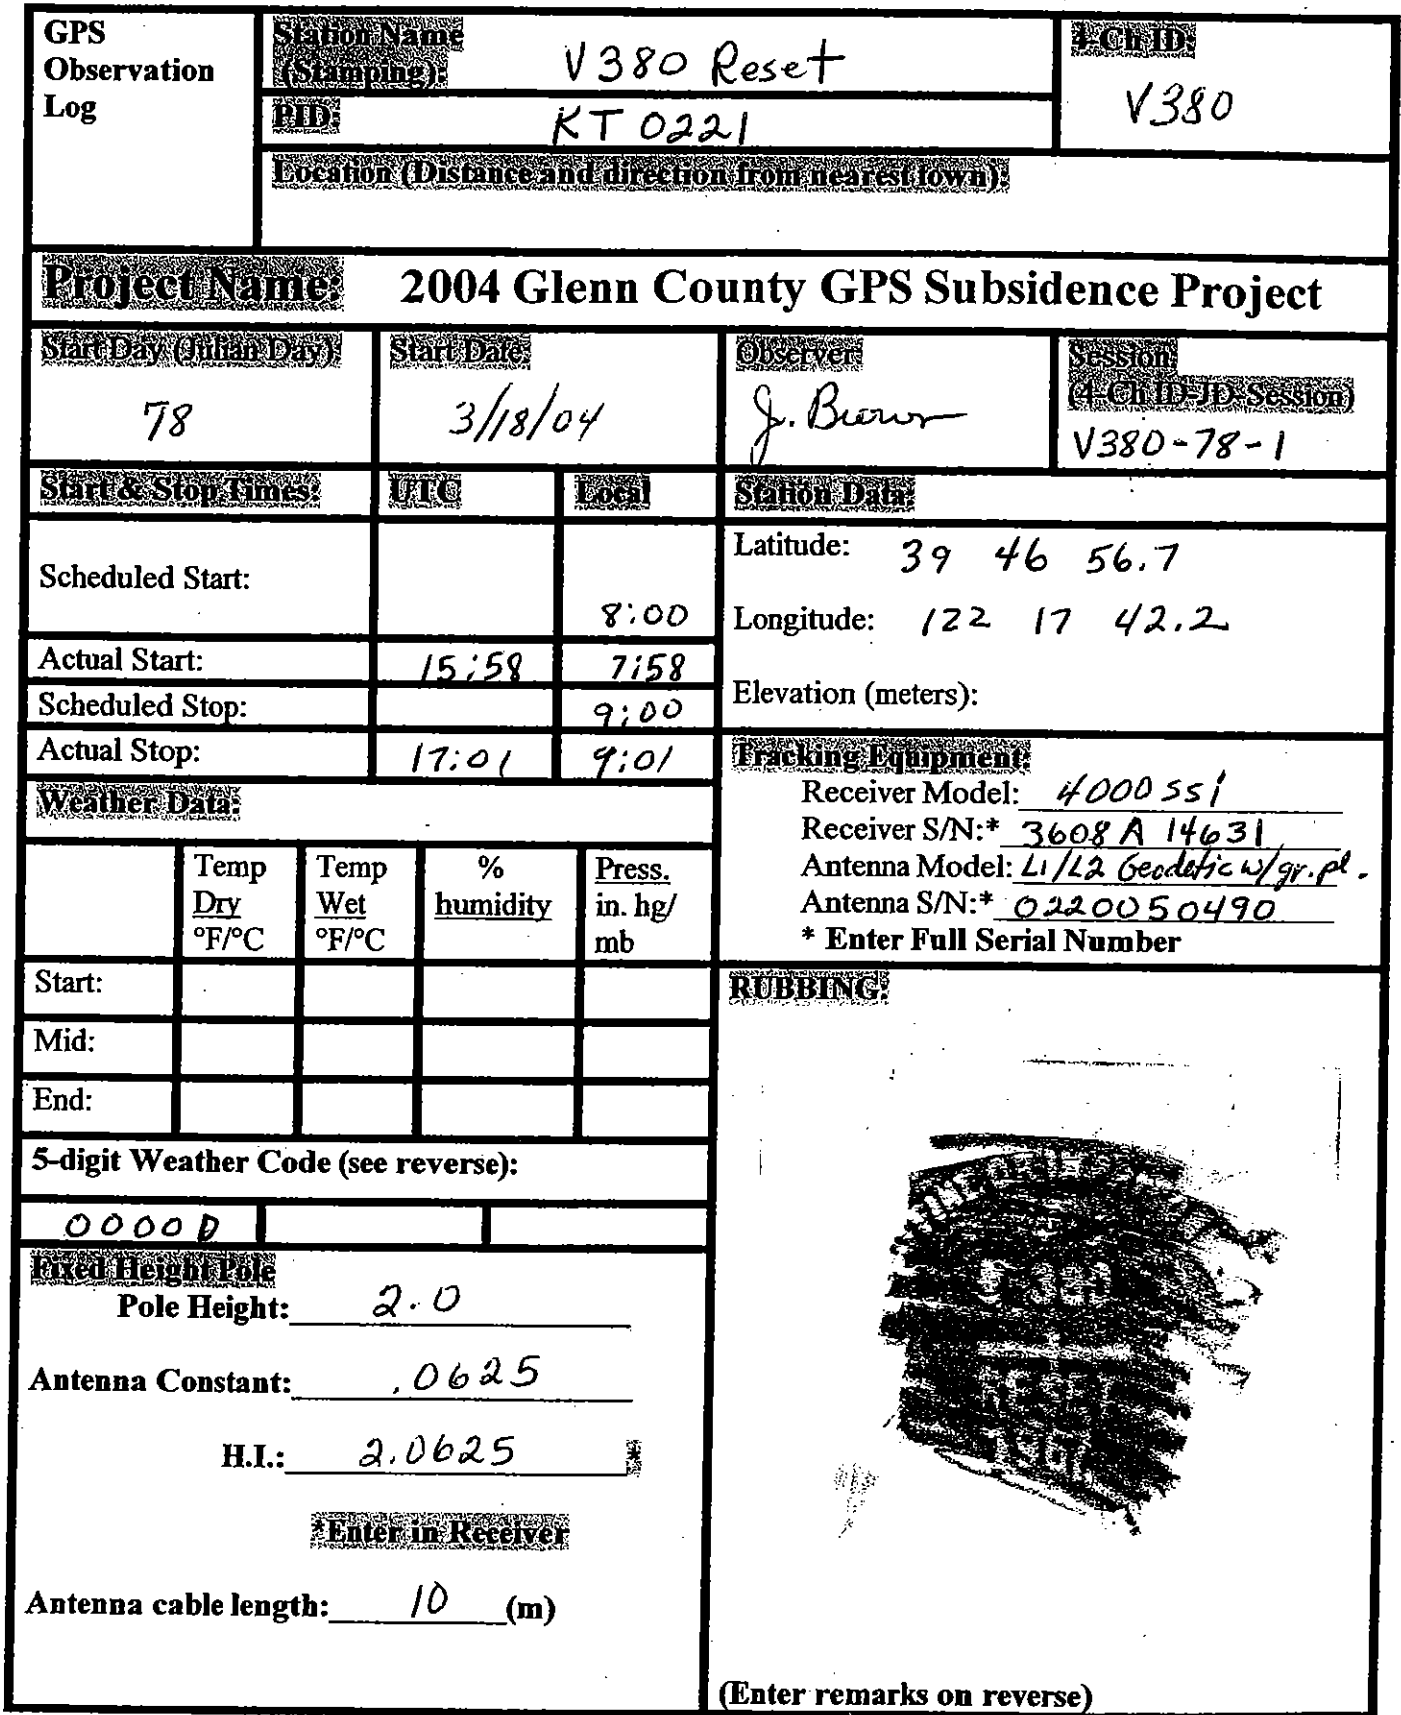 GPS
Observation
Log
Station Name
(Stamping):
V380 Reset
4-Ch ID:
V380
PID:
KT 0221
Location (Distance and direction from nearest town):
Project Name: 2004 Glenn County GPS Subsidence Project
Start Day (Julian Day):
78
Start Date:
3/18/04
Observer:
J. Brown
Session
(4-Ch ID-JD-Session)
V380-78-1
Start & Stop Times: UTC Local
Scheduled Start: 8:00
Actual Start: 15:58 7:58
Scheduled Stop: 9:00
Actual Stop: 17:01 9:01
Station Data:
Latitude: 39 46 56.7
Longitude: 122 17 42.2
Elevation (meters):
Tracking Equipment:
Receiver Model: 4000 ssi
Receiver S/N:* 3608 A 14631
Antenna Model: L1/L2 Geodetic w/gr.pl.
Antenna S/N:* 0220050490
* Enter Full Serial Number
Weather Data:
Temp
Dry
°F/°C
Temp
Wet
°F/°C
%
humidity
Press.
in. hg/
mb
Start:
Mid:
End:
5-digit Weather Code (see reverse):
0000D
Fixed Height Pole
Pole Height: 2.0
Antenna Constant: .0625
H.I.: 2.0625 *
*Enter in Receiver
Antenna cable length: 10 (m)
RUBBING:
(Enter remarks on reverse)